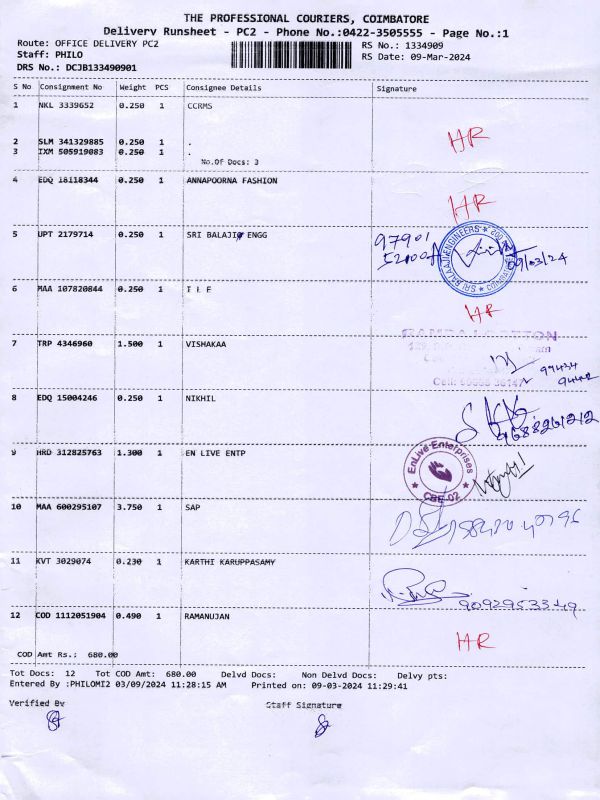 THE PROFESSIONAL COURIERS, COIMBATORE
Delivery Runsheet - PC2 - Phone No.:0422-3505555 - Page No.:1
Route: OFFICE DELIVERY PC2
RS No.: 1334909
Staff: PHILO
RS Date: 09-Mar-2024
DRS No.: DCJB133490901
S No Consignment No Weight PCS Consignee Details Signature
1 NKL 3339652 0.250 1 CCRMS
2 SLM 341329885 0.250 1 .
HR
3 IXM 505919083 0.250 1 .
No.Of Docs: 3
4 EDQ 18118344 0.250 1 ANNAPOORNA FASHION
HR
5 UPT 2179714 0.250 1 SRI BALAJI ENGG
97901
09/03/24
6 MAA 107820844 0.250 1 I L E
HR
7 TRP 4346960 1.500 1 VISHAKAA
99434
8 EDQ 15004246 0.250 1 NIKHIL
9688261212
9 HRD 312825763 1.300 1 EN LIVE ENTP
EnLive Enterprises
CBE-02
10 MAA 600295107 3.750 1 SAP
11 KVT 3029074 0.230 1 KARTHI KARUPPASAMY
9092953349
12 COD 1112051904 0.490 1 RAMANUJAN
HR
COD Amt Rs.: 680.00
Tot Docs: 12 Tot COD Amt: 680.00 Delvd Docs: Non Delvd Docs: Delvy pts:
Entered By :PHILOMI2 03/09/2024 11:28:15 AM Printed on: 09-03-2024 11:29:41
Verified By Staff Signature